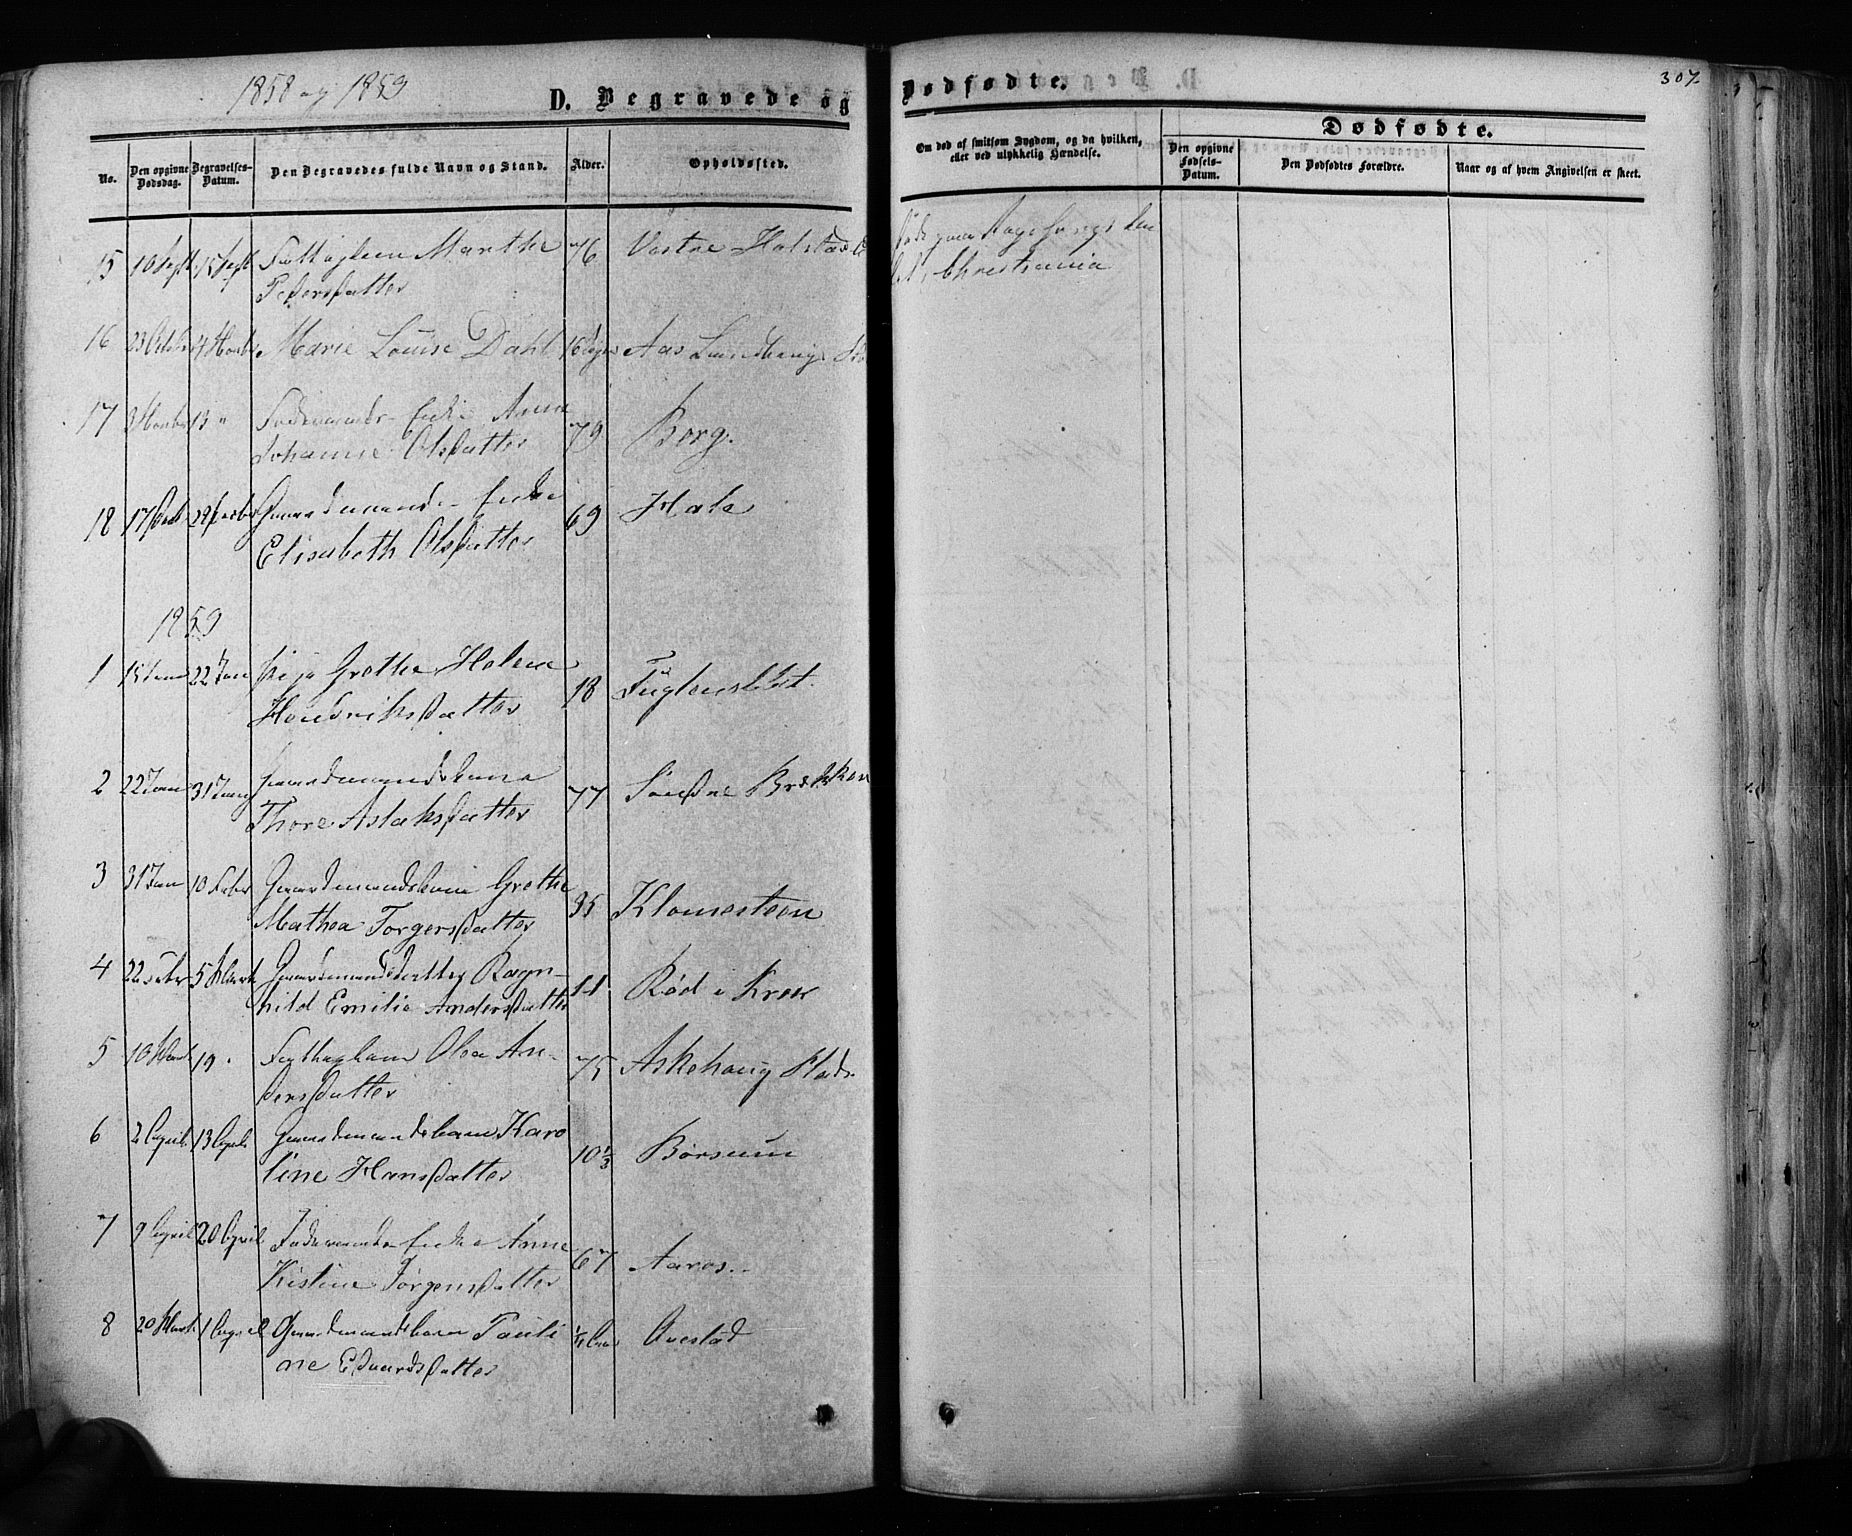 1858 og 1859
D. Begravede og
Dødfødte.
307.
No.
Den opgivne Dødsdag.
Begravelses-Datum.
Den Begravedes fulde Navn og Stand.
Alder.
Opholdssted.
Om død af smitsom Sygdom, og da hvilken, eller ved ulykkelig Hændelse.
Dødfødte.
Den opgivne Fødsels-Datum.
Den Dødfødtes Forældre.
Naar og af hvem Angivelsen er skeet.
15 10 Sept 15 Sept Marthe 76 Vestre Halstad
Pedersdatter
Christiania
16 23 Octbr 4 Novbr Marie Louise Dahl 16 Dage Aas
17 3 Novbr 13 " Enke Anne 79 Borg.
Johanne Olsdatter
18 17 29 Gaardmands Enke 69 Hals
Elisabeth Olsdatter
1859
1 15 Jan 22 Jan Pige Grethe Helene 18 Fuglenslet.
Hendriksdatter
2 22 Jan 31 Jan Gaardmandskone 77 Søndre Brekken
Thore Aslaksdatter
3 31 Jan 10 Febr Gaardmandskone Grethe 35 Klomesteen
Mathea Torgersdatter
4 22 Febr 5 Marts Gaardmandsdatter Ragn- 11 Rød i Kroer
hild Emilie Andersdatter
5 10 Marts 19 " Olea An- 75 Askehoug
dersdatter
6 2 April 13 April Gaardmandsbarn Karo 10 1/3 Børsum
line Hansdatter
7 9 April 20 April Enke Anne 67 Aaros.
Kistine Jørgensdatter
8 20 Marts 1 April Gaardmandsbarn Pauli Ovestad
ne Edvardsdatter